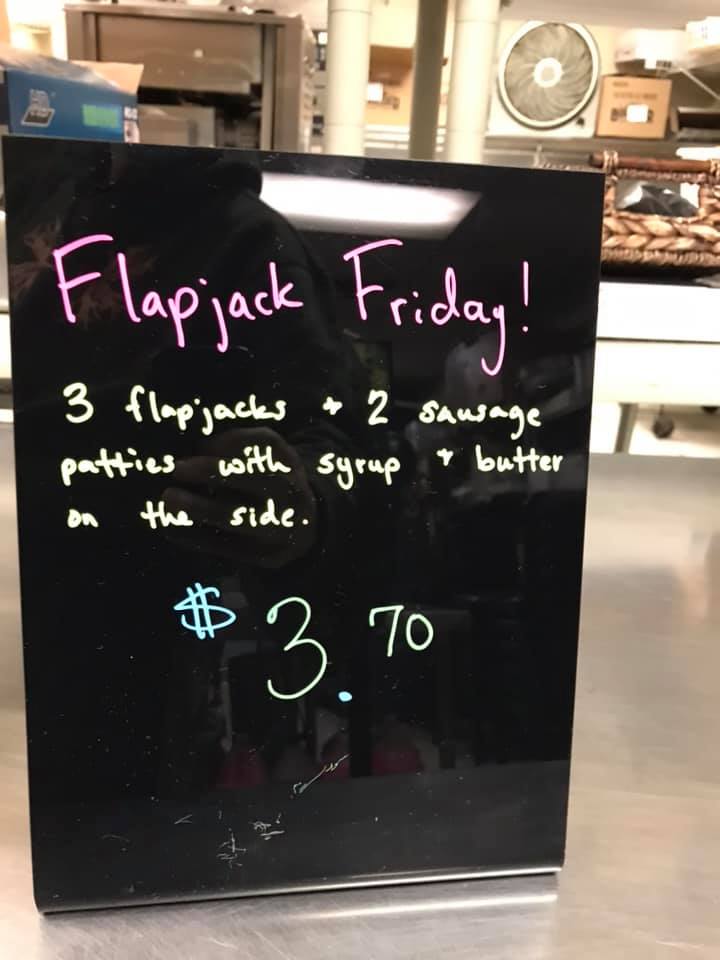 Flapjack Friday!
3 flapjacks + 2 sausage
patties with syrup + butter
on the side.
$3.70